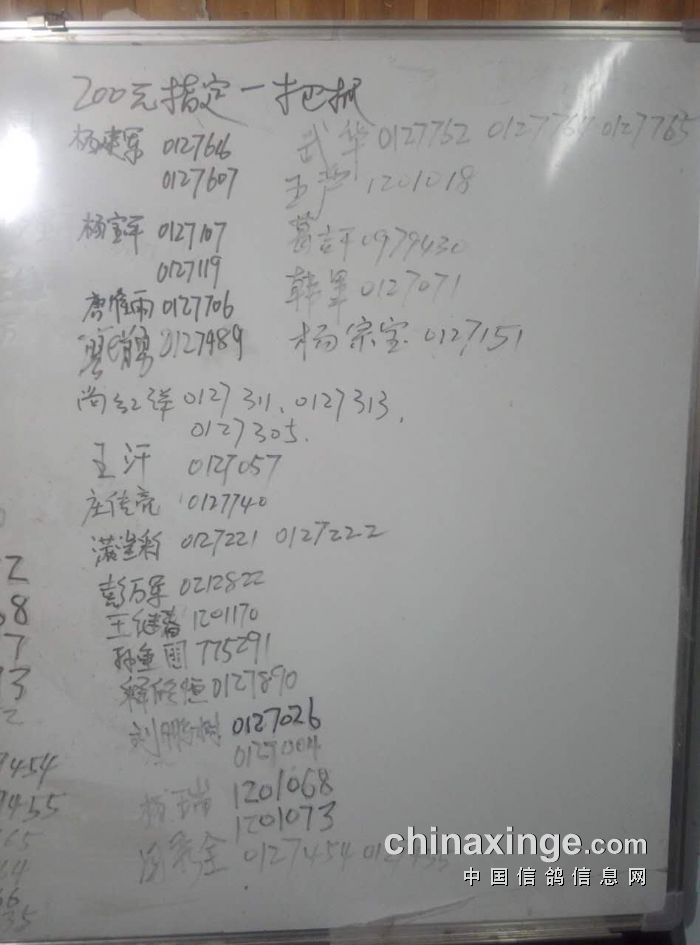 200元指定一把抓
杨建军 0127616
0127607
杨宝军 0127107
0127119
唐 雨 0127706
0127489
尚红 0127311、0127313、
0127305.
王汗 0127057
庄传亮 0127740
0127221 0127222
彭万军 0212822
王继蓄 1201170
775291
释 恒 0127890
刘鹏树 0127026
0127004
杨瑞 1201068
1201073
金 0127454
武华 0127752 0127765
王芦 1201018
葛 0979430
韩军 0127071
杨宗宝 0127151
7454
7455
chinaxinge.com
中国信鸽信息网